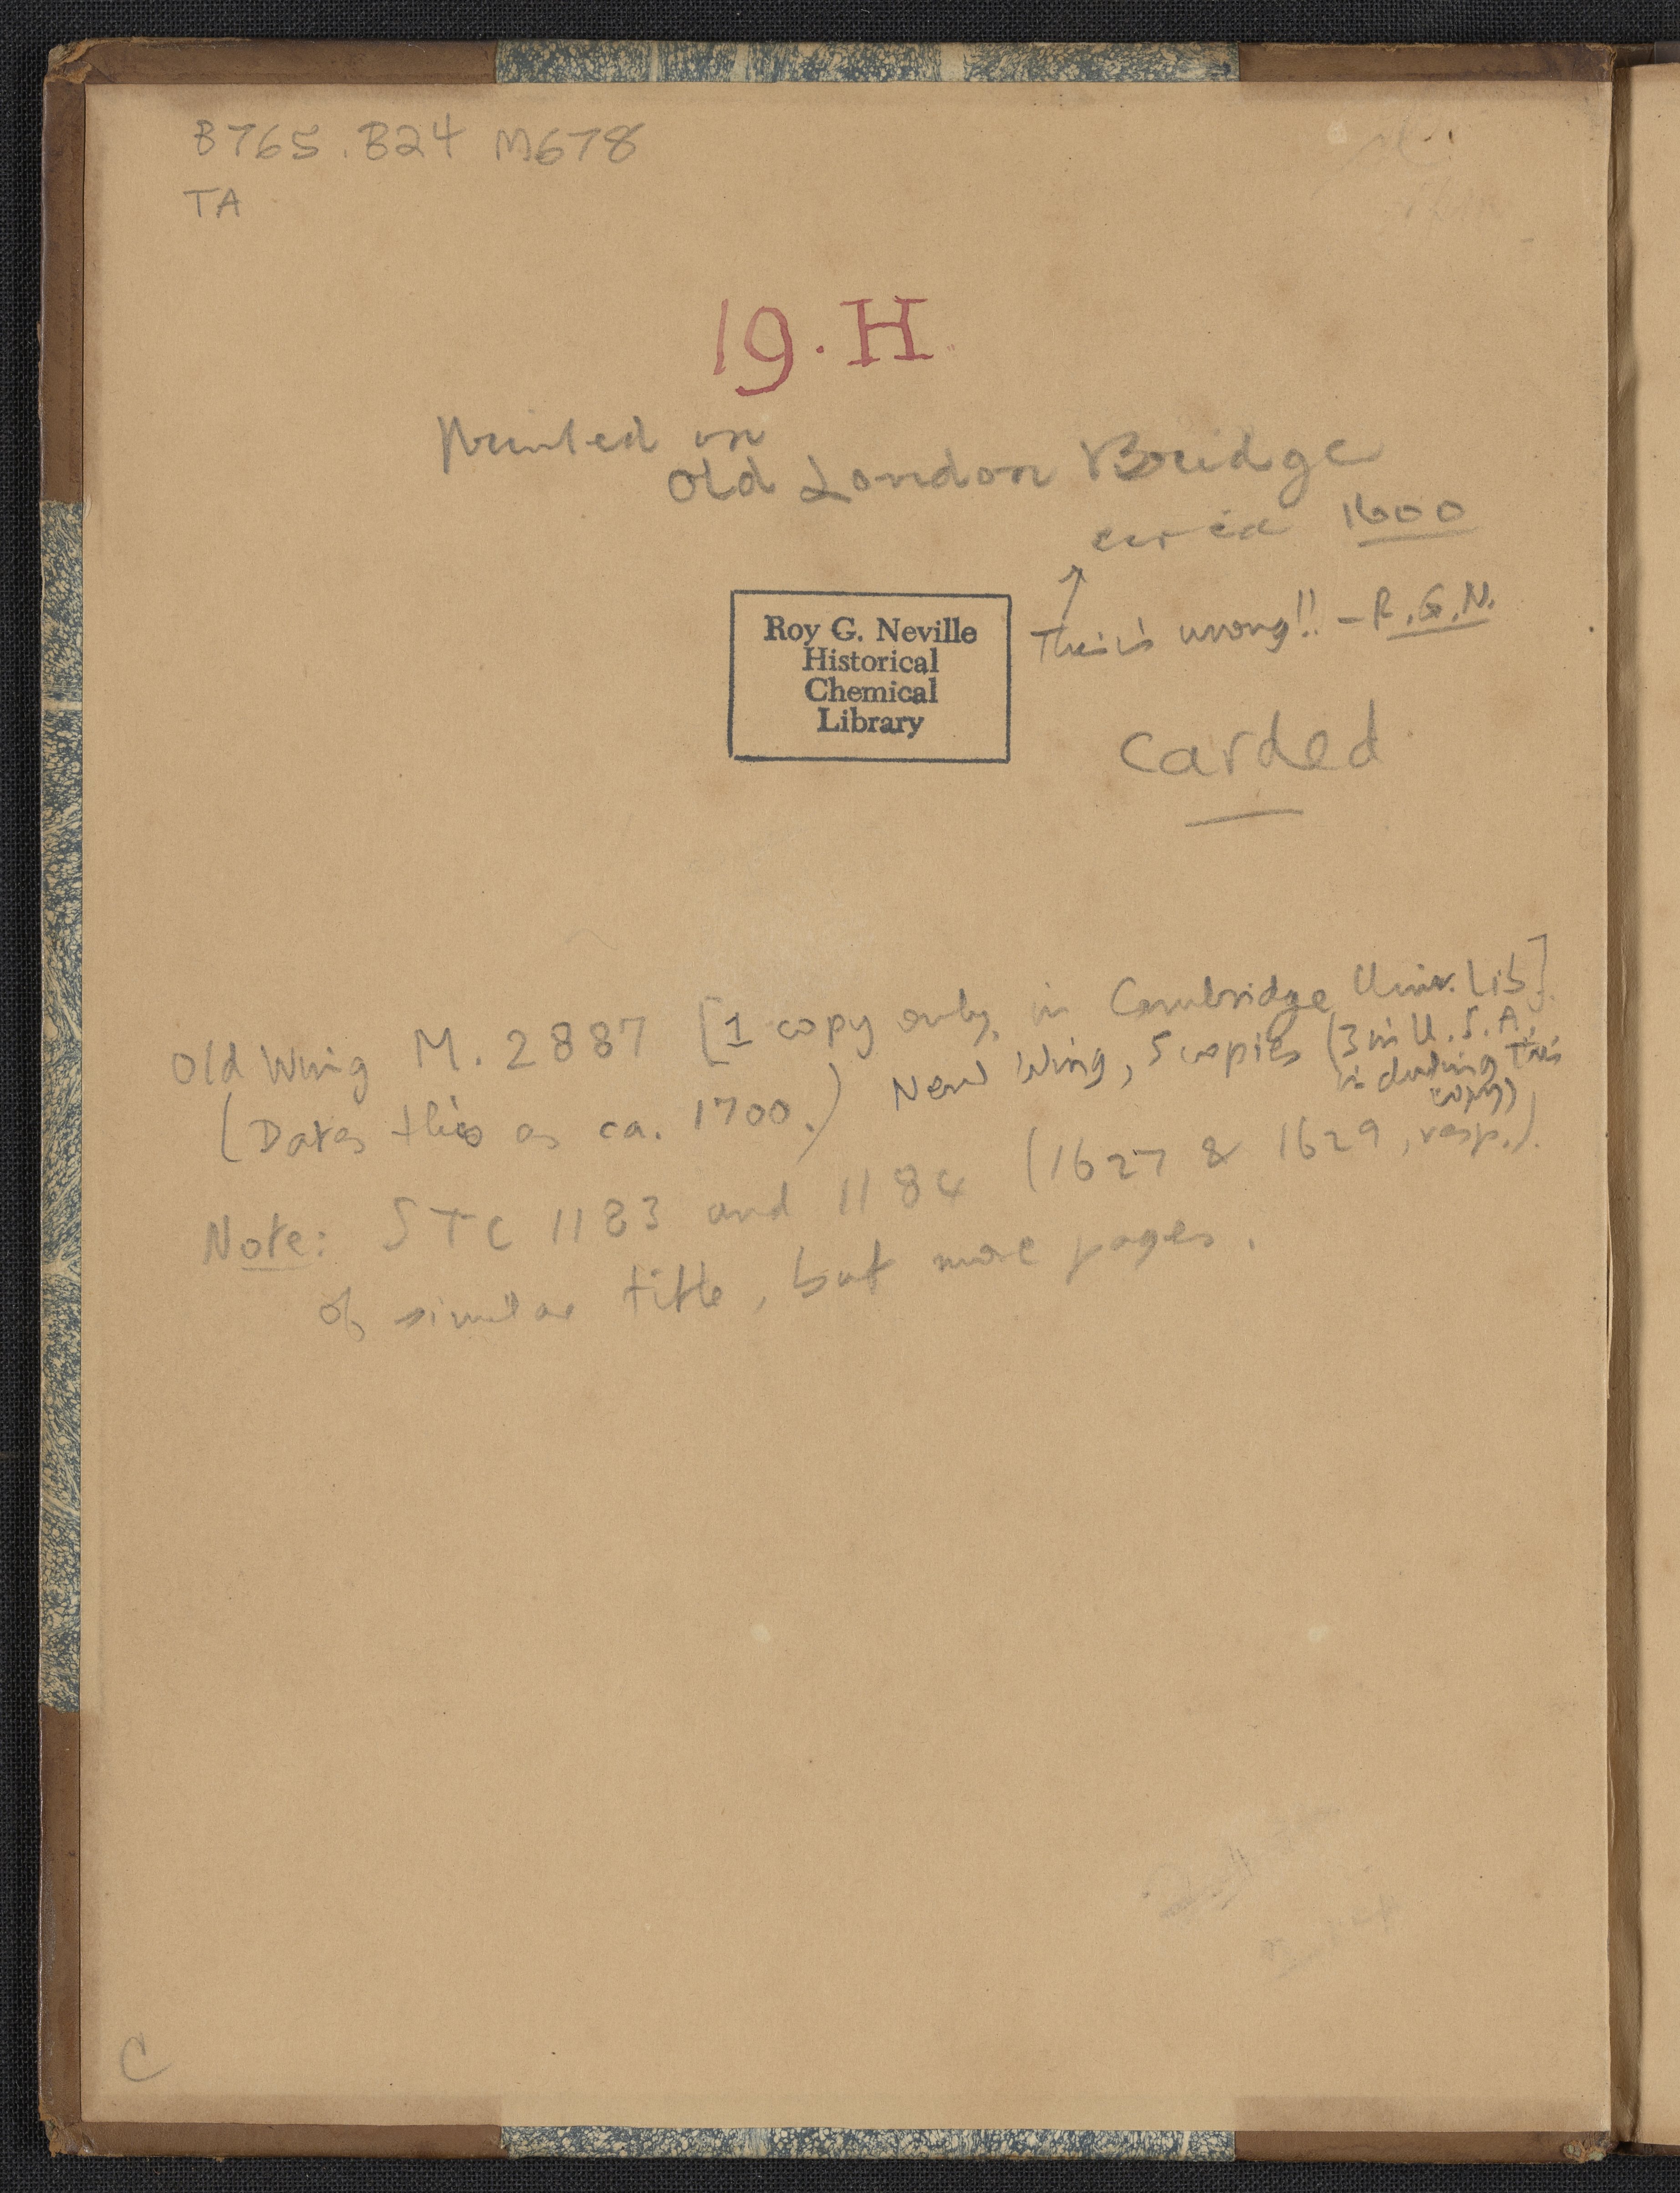 B765.B24 M678
TA
19.H
Printed on
Old London Bridge
circa 1600
↑
This is wrong!! – R.G.N.
Roy G. Neville
Historical
Chemical
Library
Carded
Old Wing M.2887 [1 copy only, in Cambridge Univ. Lib].
(Dates this as ca. 1700.) New Wing, 5 copies (3 in U.S.A.
including this
copy)
Note: STC 1183 and 1184 (1627 & 1629, resp.).
of similar title, but more pages.
C